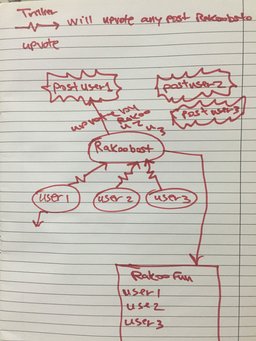 will upvote any post Rakoobosto
upvote
post user1
post user2
post user3
upvote
Rakoo
u 2 u 3
Rakoobost
user1
user 2
user3
Rakoo Fun
user1
use2
user3